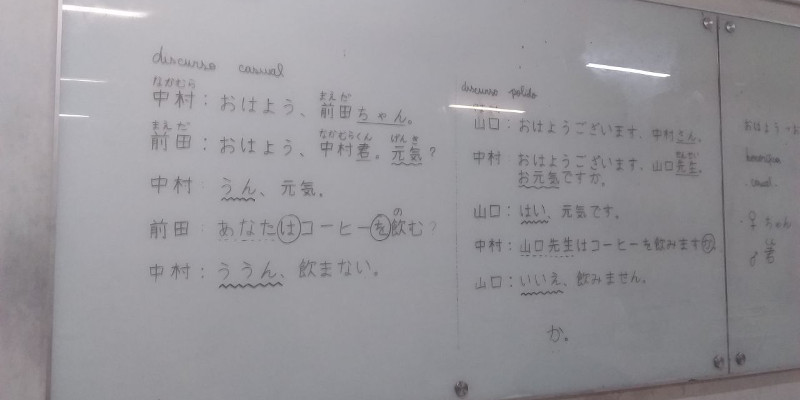 discurso casual
なかむら まえだ
中村：おはよう、前田ちゃん。
まえだ なかむらくん げんき
前田：おはよう、中村君。元気？
中村：うん、元気。
の
前田：あなたはコーヒーを飲む？
中村：ううん、飲まない。
discurso polido
山口：おはようございます、中村さん。
せんせい
中村：おはようございます、山口先生。
お元気ですか。
山口：はい、元気です。
中村：山口先生はコーヒーを飲みますか。
山口：いいえ、飲みません。
か。
おはよう
casual
♀ ちゃん
♂ 君